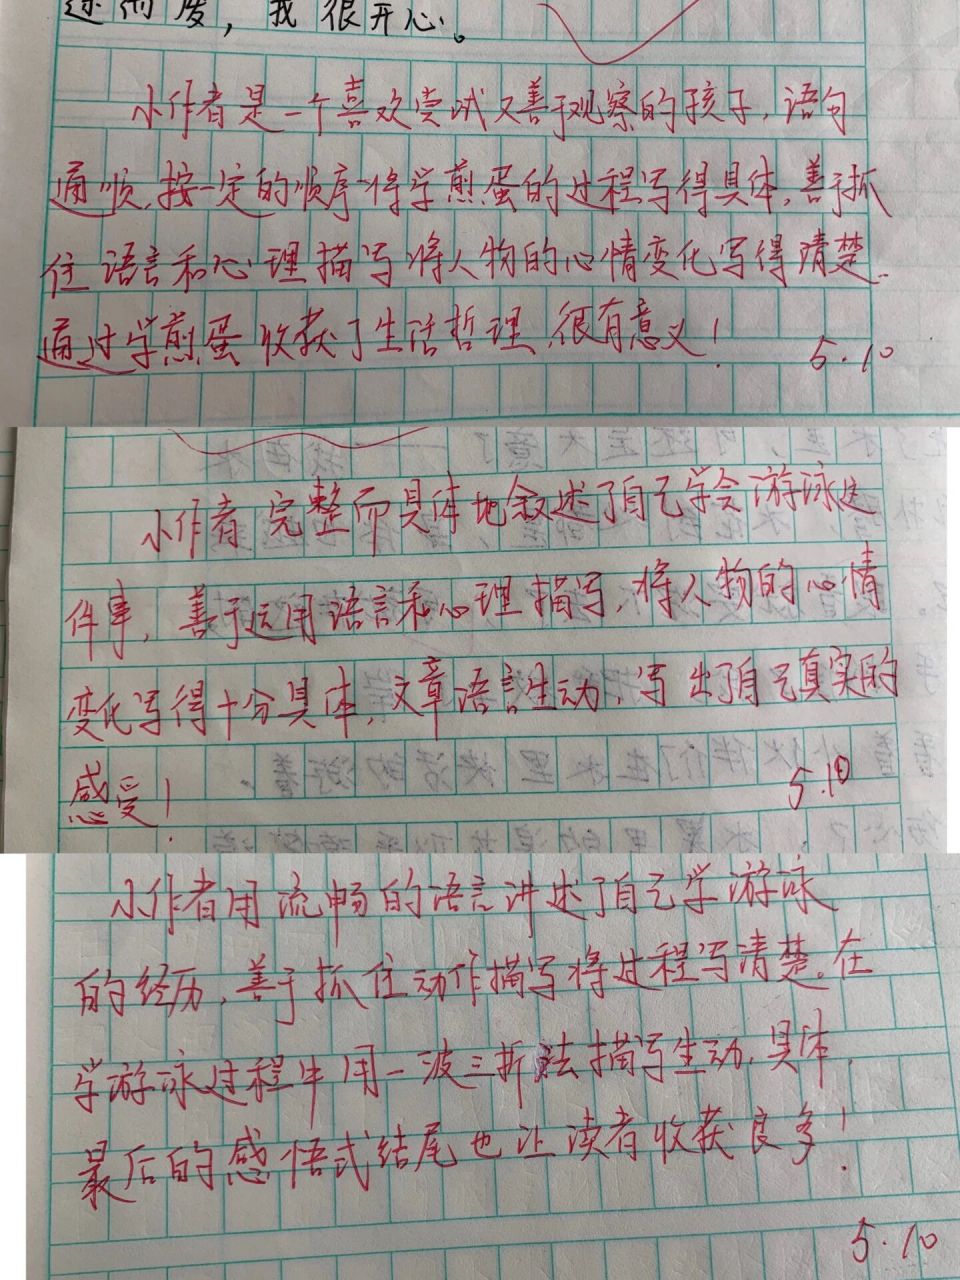 而废，我很开心。
小作者是一个喜欢尝试又善于观察的孩子，语句
通顺，按一定的顺序将学煎蛋的过程写得具体，善于抓
住语言和心理描写将人物的心情变化写得清楚。
通过学煎蛋收获了生活哲理，很有意义！
5.10
小作者完整而具体地叙述了自己学会游泳这
件事，善于运用语言和心理描写，将人物的心情
变化写得十分具体，文章语言生动，写出了自己真实的
感受！
5.10
小作者用流畅的语言讲述了自己学游泳
的经历，善于抓住动作描写将过程写清楚。在
学游泳过程中用一波三折法描写生动、具体，
最后的感悟式结尾也让读者收获良多！
5.10